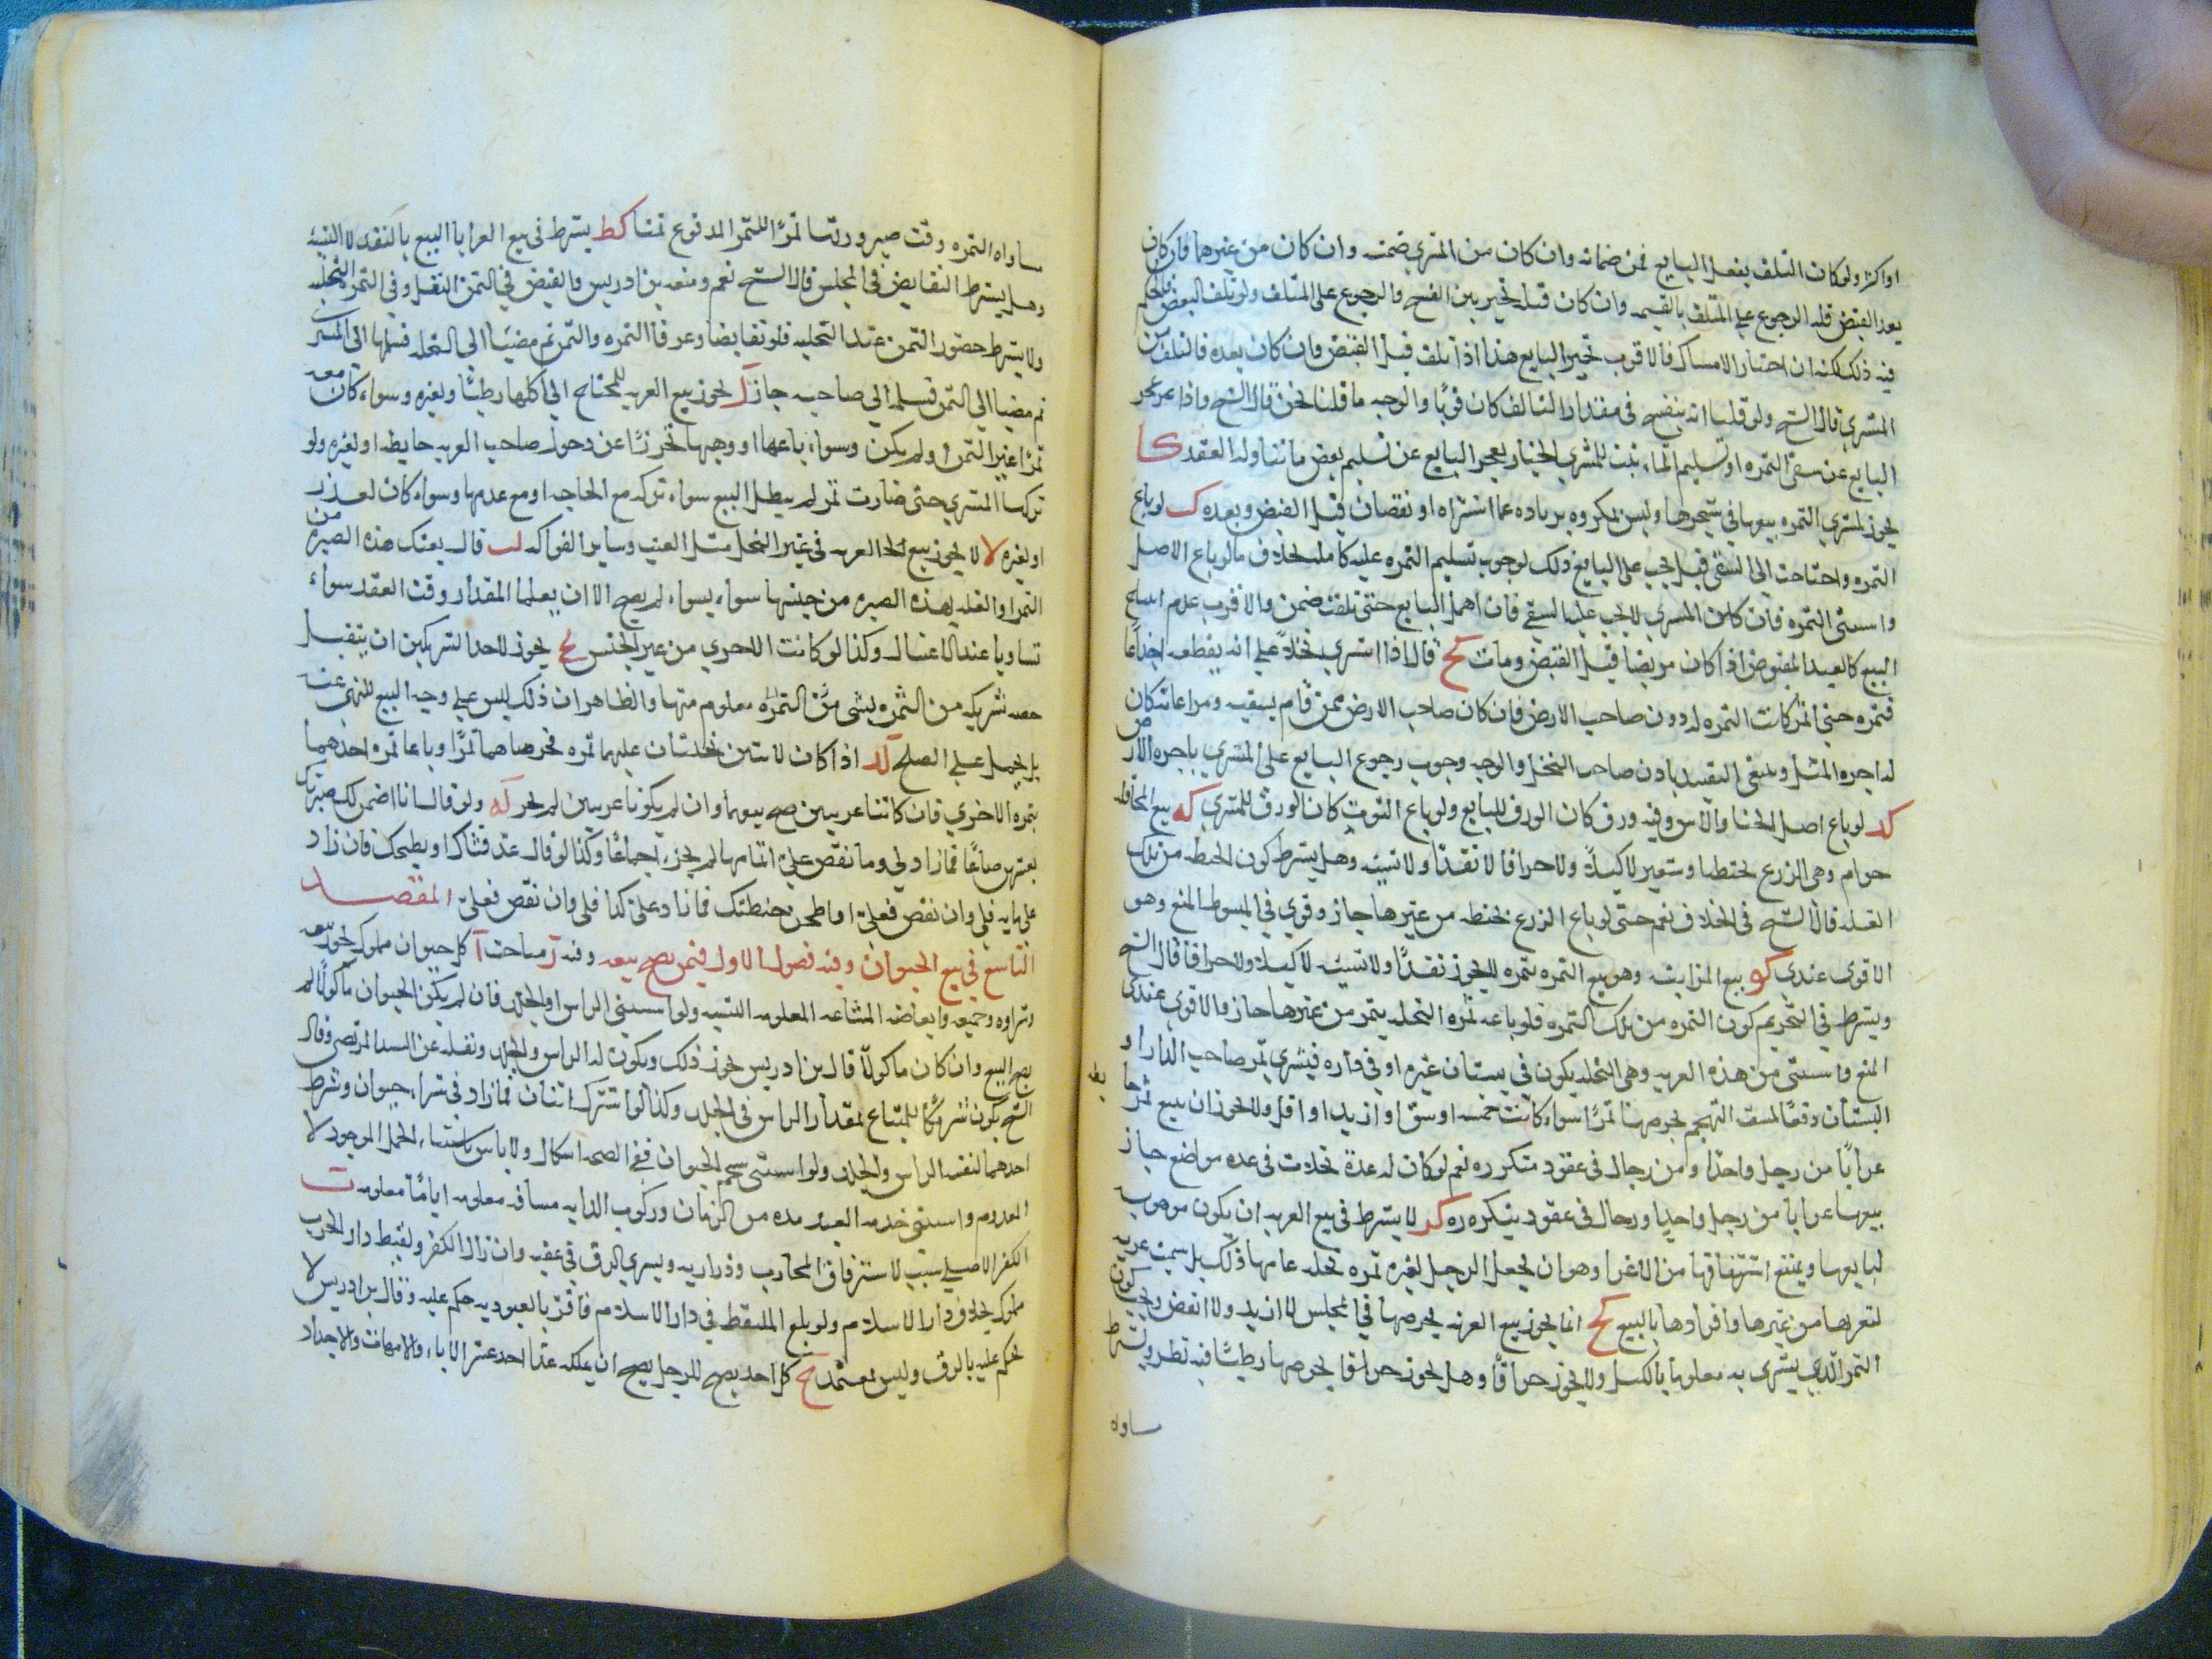 او اكثر ولو كان التلف بفعل البايع فمن ضمانه وان كان من المشتري ضمنه وان كان من غيرهما فان كان
بعد القبض فله الرجوع على المتلف بالقيمه وان كان قبله تخير بين الفسخ والرجوع على المتلف ولو تلف البعض فالحكم
فيه ذلك لكنه ان اختار الامساك فالاقرب تخير البايع هذا اذا تلف قبل القبض وان كان بعده فالتلف من
المشتري قال الشيخ ولو قلنا انه ينفسخ في مقدار التالف كان قويا والوجه ما قلنا نحن قال الشيخ واذا عجز
البايع عن سقي الثمره او تسليم الماء يثبت للمشتري الخيار لعجز البايع عن تسليم بعض ما تناوله العقد كا
يجوز لمشتري الثمره بيعها في شجرها وليس بمكروه بزياده عما اشتراه او نقصان قبل القبض وبعده كب لو باع
الثمره واحتاجت الى السقي قبل يجب على البايع ذلك لوجوب تسليم الثمره عليه كامله بخلاف ما لو باع الاصل
واستثنى الثمره فان كان المشتري لا يجب عليه السقي فان اهمل البايع حتى تلفت ضمن والاقرب عدم
البيع كالعبد المقبوض اذا كان مريضا قبل القبض ومات كج قال اذا اشترى نخلا على انه يقطعه اجذاعا
فتركه حتى اثمر كانت الثمره له دون صاحب الارض فان كان صاحب الارض ممن قام بسقيه ومراعاته كان
له اجره المثل وينبغي التقييد باذن صاحب النخل والوجه وجوب رجوع البايع على المشتري باجره الارض
كد لو باع اصل الحنا والاس وفيه ورق كان الورق للبايع ولو باع التوت كان الورق للمشتري كه بيع المحاقله
حرام وهي الزرع بحنطه او شعير لا كيلا ولا جزافا لا نقدا ولا نسيئه وهل يشترط كون الحنطه من تلك
الغله قال الشيخ في الخلاف نعم حتى لو باع الزرع بحنطه من غيرها جاز وقوي في المبسوط المنع وهو
الاقوى عندي كو بيع المزابنه وهو بيع الثمره بتمره لا يجوز نقدا ولا نسيئه لا كيلا ولا جزافا قال الشيخ
ويشترط في التحريم كون الثمره من تلك الثمره فلو باعه ثمره النخله بتمر من غيرها جاز والاقوى عندي
المنع واستثنى من هذه العريه وهي النخله يكون في بستان غيره او في داره فيشتري ثمر صاحب الدار او
البستان دفعا لمشقه التهجم بخرصها تمرا سواء كانت خمسه اوسق او ازيد او اقل ولا يجوز ان يبيع ثمر
عرايا من رجل واحد او من رجال في عقود متكرره نعم لو كان له عدة نخلات في عده مواضع جاز
بيعها عرايا من رجل واحد او رجال في عقود متكرره كز لا يشترط في بيع العريه ان يكون موهوبه
لبايعها ويمنع اشتقاقها من الاعرا وهو ان يجعل الرجل لغيره ثمره نخله عامها ذلك بل سميت عريه
لتعريها من غيرها وافرادها بالبيع كح انما يجوز بيع العريه بخرصها في المجلس لا ازيد ولا انقص ويجب كون
التمر الذي يشتري به معلوما بالكيل ولا يجوز جزافا وهل يجوز جزافا بخرصها رطبا فيه نظر ويشترط
ساواه
ساواه الثمره وقت صيرورتها تمرا للتمر المدفوع ثمنا كط يشترط في بيع العرايا البيع بالنقد لا النسيئه
وهل يشترط التقابض في المجلس قال الشيخ نعم ومنعه بن ادريس والقبض في الثمن النقل وفي الثمره التخليه
ولا يشترط حضور الثمن عند التخليه فلو تقابضا وعرفا الثمره والثمن ثم مضيا الى النخله فسلمها الى المشتري
ثم مضيا الى الثمن فسلمه الى صاحبه جاز ل يجوز بيع العريه للمحتاج الى اكلها رطبا ولغيره وسواء كان معه
ثمرا غير الثمن او لم يكن وسواء باعها او وهبها تحرزا عن دخول صاحب العريه حايطه او لغيره ولو
تركها المشتري حتى صارت تمر لم يبطل البيع سواء تركه مع الحاجه او مع عدمها وسواء كان لعذر
او لغيره لا لا يجوز بيع العريه في غير النخل مثل العنب وساير الفواكه لب قال بعتك هذه الصبره من
التمر او الغله بهذه الصبره من جنسها سواء بسواء لم يصح الا ان يعلما المقدار وقت العقد سواء
تساويا عند الاعتبار وكذا لو كانت الاخرى من غير الجنس لج يجوز لاحد الشريكين ان يتقبل
حصه شريكه من الثمره بشى من الثمره معلوم منها والظاهر ان ذلك ليس على وجه البيع للنهي عنه
بل يحمل على الصلح لد اذا كان لاثنين نخلتان عليهما ثمره فخرصاهما تمرا وباعا ثمره احدهما
بثمره الاخرى فان كانتا عريتين صح بيعهما وان لم يكونا عريتين لم يجز له ولو قال انا اضمن لك صبرتك
بعشرين صاعا فما زاد لي وما نقص علي اتمامها لم يجز اجماعا وكذا لو قال عد قثاك او بطيخك فان زاد
على مايه فلي وان نقص فعلي او اطحن حنطتك فما زاد على كذا فلي وان نقص فعلي المقصد
التاسع في بيع الحيوان وفيه فصول الاول فيمن يصح بيعه وفيه ز مباحث ا كل حيوان مملوك يجوز بيعه
وشراوه وجميعه وابعاضه المشاعه المعلومه النسبه ولو استثنى الراس او الجلد فان لم يكن الحيوان ماكولا لم
يصح البيع وان كان ماكولا قال بن ادريس يجوز ذلك ويكون له الراس والجلد ونقله عن السيد المرتضى وقال
الشيخ يكون شريكا للمبتاع بمقدار الراس في الجلد وكذا لو اشترك اثنان فما زاد في شراء حيوان وشرط
احدهما لنفسه الراس والجلد ولو استثنى شحم الحيوان ففي الصحه اشكال ولا باس باستثناء الحمل الموجود لا
المعدوم واستثنى خدمه العبد مده من الزمان وركوب الدابه مسافه معلومه اياما معلومه ب
الكفر الاصلي سبب لاسترقاق المحارب وذراريه ويسري الرق في عقبه وان زال الكفر ولقيط دار الحرب
مملوك بخلاف دار الاسلام ولو بلغ الملتقط في دار الاسلام فاقر بالعبوديه حكم عليه وقال بن ادريس لا
يحكم عليه بالرق وليس بمعتمد ج كل احد يصح للرجل يصح ان يملكه عدا احد عشر الاباء والامهات والاجداد